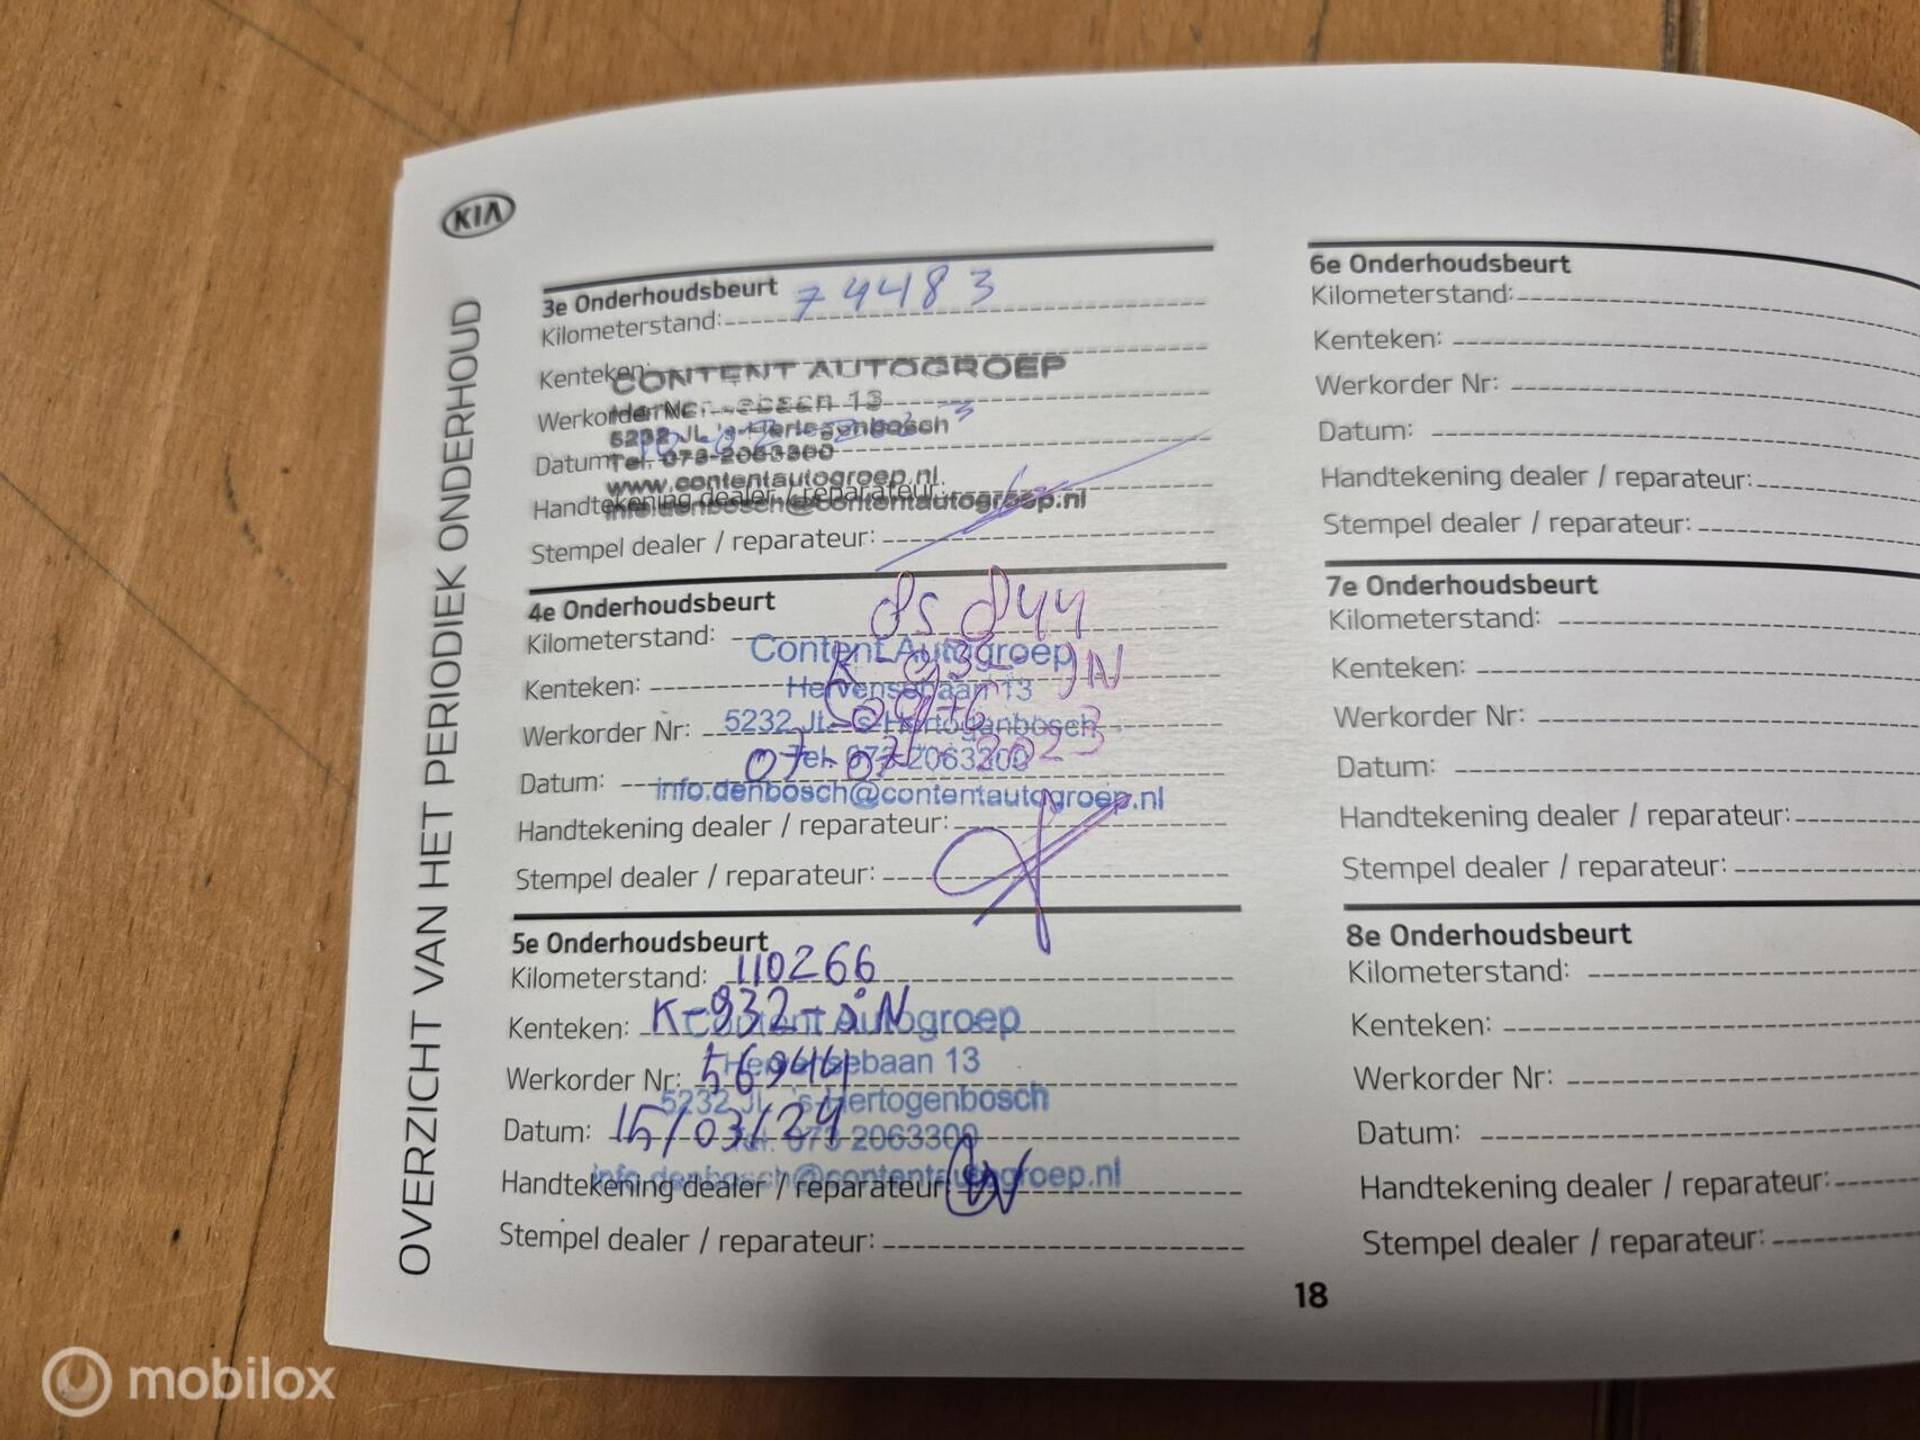 KIA
OVERZICHT VAN HET PERIODIEK ONDERHOUD
3e Onderhoudsbeurt
Kilometerstand: 74483
Kenteken:
CONTENT AUTOGROEP
Werkorder Nr:
13
5232 JL 's-Hertogenbosch
Datum:
Tel. 073-2063300
www.contentautogroep.nl
Handtekening dealer / reparateur:
info.denbosch@contentautogroep.nl
Stempel dealer / reparateur:
4e Onderhoudsbeurt
Kilometerstand:
Content Autogroep
Kenteken: K-932-JN
Hervensebaan 13
Werkorder Nr:
5232 JL 's-Hertogenbosch
Datum:
Tel. 073-2063300
info.denbosch@contentautogroep.nl
Handtekening dealer / reparateur:
Stempel dealer / reparateur:
5e Onderhoudsbeurt
Kilometerstand: 110266
Kenteken: K-932-JN
Content Autogroep
Hervensebaan 13
Werkorder Nr: 56944
5232 JL 's-Hertogenbosch
Datum: 15/03/24
Tel. 073 2063300
info.denbosch@contentautogroep.nl
Handtekening dealer / reparateur:
Stempel dealer / reparateur:
6e Onderhoudsbeurt
Kilometerstand:
Kenteken:
Werkorder Nr:
Datum:
Handtekening dealer / reparateur:
Stempel dealer / reparateur:
7e Onderhoudsbeurt
Kilometerstand:
Kenteken:
Werkorder Nr:
Datum:
Handtekening dealer / reparateur:
Stempel dealer / reparateur:
8e Onderhoudsbeurt
Kilometerstand:
Kenteken:
Werkorder Nr:
Datum:
Handtekening dealer / reparateur:
Stempel dealer / reparateur:
18
mobilox